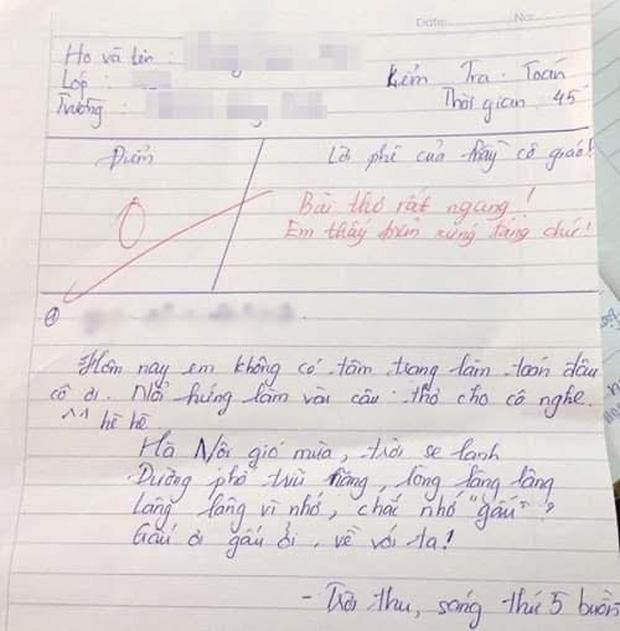 Date: No:
Họ và tên :
Lớp :
Trường :
Kiểm Tra Toán
Thời gian 45'
Điểm
Lời phê của thầy cô giáo!
0
Bài thơ rất ngang!
Em thấy điểm xứng đáng chứ!
Hôm nay em không có tâm trạng làm toán đâu
cô ơi. Nổi hứng làm vài câu thơ cho cô nghe.
^^ hề hề
Hà Nội gió mùa, trời se lạnh
Đường phố trĩu nặng, lòng lâng lâng
Lâng lâng vì nhớ, chắc nhớ "gấu"?
Gấu ơi gấu ởi, về với ta!
- Trời thu, sáng thứ 5 buồn